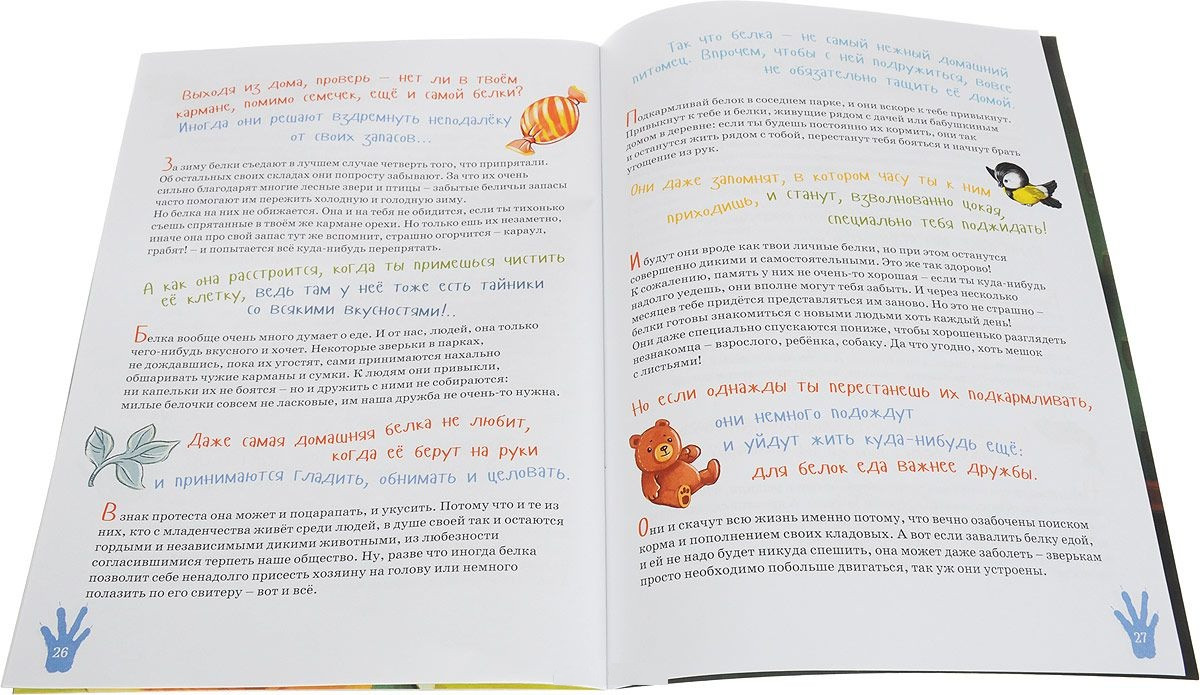 Выходя из дома, проверь – нет ли в твоём
кармане, помимо семечек, ещё и самой белки?
Иногда они решают вздремнуть неподалёку
от своих запасов...
За зиму белки съедают в лучшем случае четверть того, что припрятали.
Об остальных своих складах они попросту забывают. За что их очень
сильно благодарят многие лесные звери и птицы – забытые беличьи запасы
часто помогают им пережить холодную и голодную зиму.
Но белка на них не обижается. Она и на тебя не обидится, если ты тихонько
съешь спрятанные в твоём же кармане орехи. Но только ешь их незаметно,
иначе она про свой запас тут же вспомнит, страшно огорчится – караул,
грабят! – и попытается всё куда-нибудь перепрятать.
А как она расстроится, когда ты примешься чистить
её клетку, ведь там у неё тоже есть тайники
со всякими вкусностями!..
Белка вообще очень много думает о еде. И от нас, людей, она только
чего-нибудь вкусного и хочет. Некоторые зверьки в парках,
не дождавшись, пока их угостят, сами принимаются нахально
обшаривать чужие карманы и сумки. К людям они привыкли,
ни капельки их не боятся – но и дружить с ними не собираются:
милые белочки совсем не ласковые, им наша дружба не очень-то нужна.
Даже самая домашняя белка не любит,
когда её берут на руки
и принимаются гладить, обнимать и целовать.
В знак протеста она может и поцарапать, и укусить. Потому что и те из
них, кто с младенчества живёт среди людей, в душе своей так и остаются
гордыми и независимыми дикими животными, из любезности
согласившимися терпеть наше общество. Ну, разве что иногда белка
позволит себе ненадолго присесть хозяину на голову или немного
полазить по его свитеру – вот и всё.
26
Так что белка – не самый нежный домашний
питомец. Впрочем, чтобы с ней подружиться, вовсе
не обязательно тащить её домой.
Подкармливай белок в соседнем парке, и они вскоре к тебе привыкнут.
Привыкнут к тебе и белки, живущие рядом с дачей или бабушкиным
домом в деревне: если ты будешь постоянно их кормить, они так
и останутся жить рядом с тобой, перестанут тебя бояться и начнут брать
угощение из рук.
Они даже запомнят, в котором часу ты к ним
приходишь, и станут, взволнованно цокая,
специально тебя поджидать!
И будут они вроде как твои личные белки, но при этом останутся
совершенно дикими и самостоятельными. Это же так здорово!
К сожалению, память у них не очень-то хорошая – если ты куда-нибудь
надолго уедешь, они вполне могут тебя забыть. И через несколько
месяцев тебе придётся представляться им заново. Но это не страшно –
белки готовы знакомиться с новыми людьми хоть каждый день!
Они даже специально спускаются пониже, чтобы хорошенько разглядеть
незнакомца – взрослого, ребёнка, собаку. Да что угодно, хоть мешок
с листьями!
Но если однажды ты перестанешь их подкармливать,
они немного подождут
и уйдут жить куда-нибудь ещё:
для белок еда важнее дружбы.
Они и скачут всю жизнь именно потому, что вечно озабочены поиском
корма и пополнением своих кладовых. А вот если завалить белку едой,
и ей не надо будет никуда спешить, она может даже заболеть – зверькам
просто необходимо побольше двигаться, так уж они устроены.
27